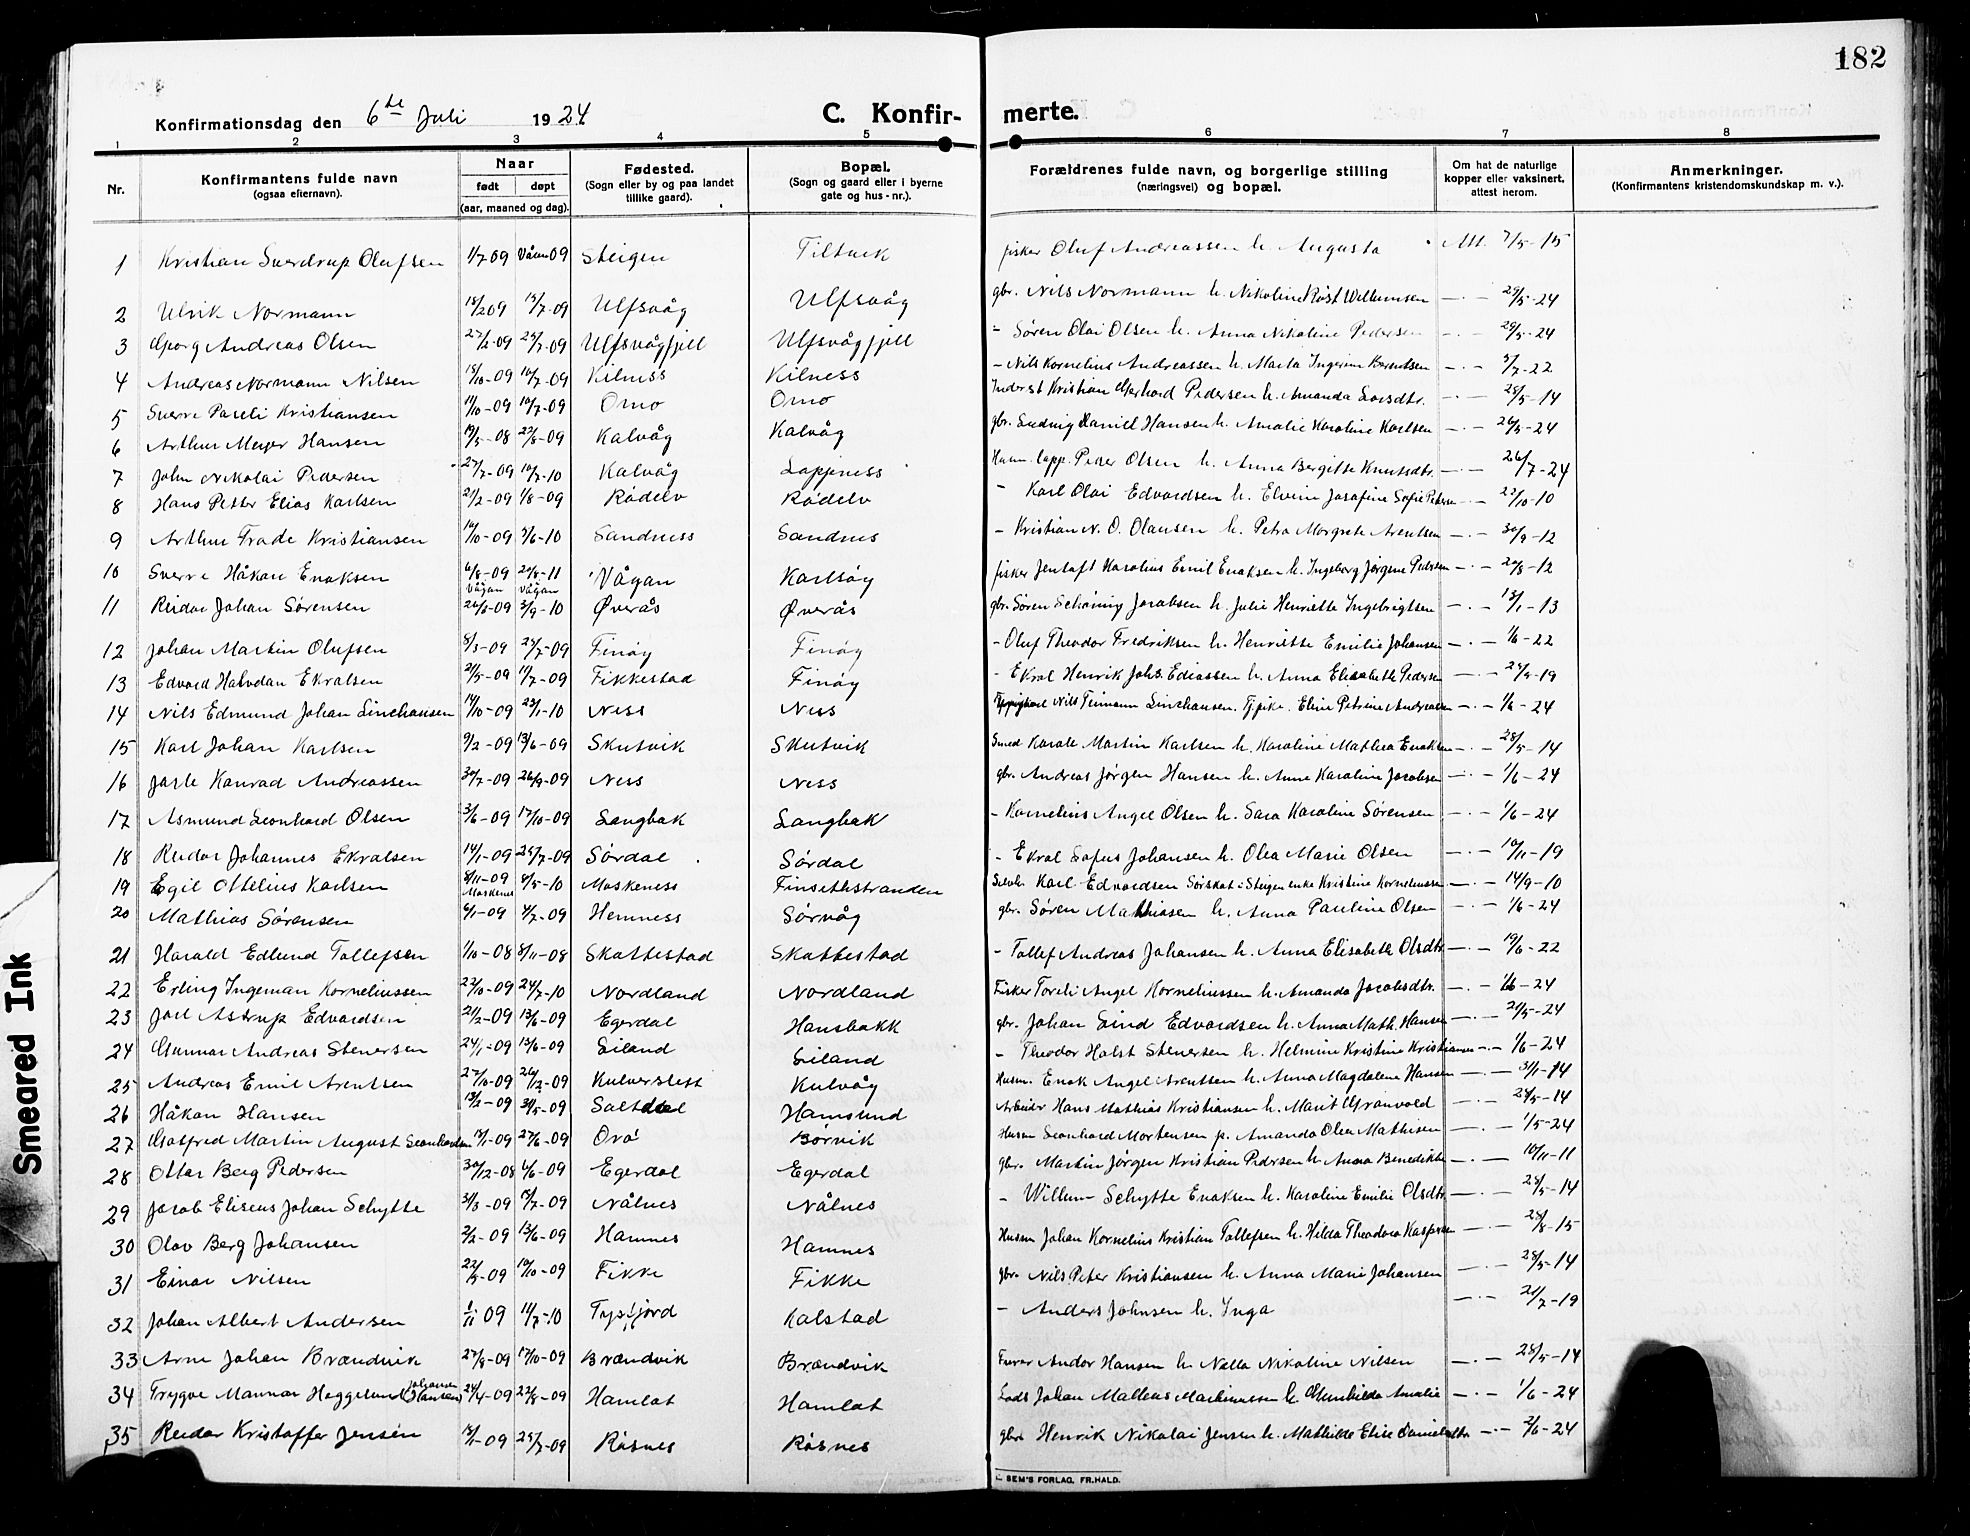 182
Konfirmationsdag den 6te Juli 1924 C. Konfir- merte.
1 2 3 4 5 6 7 8
Nr. Konfirmantens fulde navn (ogsaa efternavn). Naar født døpt (aar, maaned og dag). Fødested. (Sogn eller by og paa landet tillike gaard). Bopæl. (Sogn og gaard eller i byerne gate og hus-nr.). Forældrenes fulde navn, og borgerlige stilling (næringsvei) og bopæl. Om hat de naturlige kopper eller vaksinert, attest herom. Anmerkninger. (Konfirmantens kristendomskundskap m. v.).
1 Kristian Sverdrup Olufsen 1/7 09 Våren 09 Steigen Tiltvik fisker Oluf Andreassen h. Augusta Att. 7/5-15
2 Ulrik Normann 18/2 09 15/7-09 Ulfsvåg Ulfsvåg gbr. Nils Normann h. Nikoline Røst Willumsen 29/5-24
3 Georg Andreas Olsen 27/2-09 25/7-09 Ulfsvågfjell Ulfsvågfjell - Søren Olai Olsen h. Anna Nikoline Pedersen 29/5-24
4 Andreas Normann Nilsen 15/10-09 10/7-09 Kilness Kilness - Nils Kornelius Andreassen h. Marta Ingerine Berntsen 3/7-22
5 Sverre Pareli Kristiansen 11/10-09 10/7-09 Ømo Ømo Inderst Kristian Gerhard Pedersen h. Amanda Larsdtr. 25/5-14
6 Arthur Meyer Hansen 19/5-08 22/8-09 Kalvåg Kalvåg gbr. Ludvig Daniel Hansen h. Amalie Karoline Karlsen 26/5-24
7 John Nikolai Pedersen 27/7-09 10/7-10 Kalvåg Lappness Husm. lapp. Peder Olsen h. Anna Bergitte Knutsdtr. 26/7-24
8 Hans Petter Elias Karlsen 21/2-09 1/8-09 Rødelv Rødelv - Karl Olai Edvardsen h. Elvine Josefine Sofie Petersen 23/10-10
9 Arthur Frade Kristiansen 16/10-09 5/6-10 Sandness Sandnes - Kristian N. O. Olausen h. Petra Morgrete Arentsen 30/9-12
10 Sverre Håkan Enoksen 6/8-09 Vågan 20/8-11 Vågan Vågan Karlsøy fisker Jentoft Karolius Emil Enoksen h. Ingeborg Jørgine Pedersen 20/8-12
11 Reidar Johan Sørensen 26/6-09 3/9-10 Øverås Øverås gbr. Søren Schøning Jacobsen h. Julie Henriette Ingebrigtsen 13/1-13
12 Johan Martin Olufsen 8/3-09 25/7-09 Finøy Finøy - Oluf Theodor Fredriksen h. Henriette Emilie Johansen 1/6-22
13 Edvard Halvdan Ekralsen 21/5-09 11/7-09 Fikkestad Finøy - Ekral Henrik Johs. Ediassen h. Anna Elisabeth Pedersen 25/9-19
14 Nils Edmund Johan Linchausen 14/10-09 23/1-10 Ness Ness Nils Teimann Linchausen. Tj.pike. Eline Petrine Andreasen 1/6-24
15 Karl Johan Karlsen 9/2-09 13/6-09 Skutvik Skutvik Smed Karole Martin Karlsen h. Karoline Mathea Enoksen 28/5-14
16 Jarle Konrad Andreassen 30/7-09 26/9-09 Ness Ness gbr. Andreas Jørgen Hansen h. Anne Karoline Jacobsen 1/6-24
17 Asmund Leonhard Olsen 3/6-09 17/10-09 Langbak Langbak - Kornelius Angel Olsen h. Sara Karoline Sørensen 1/6-24
18 Reidar Johannes Ekralsen 14/1-09 25/7-09 Sørdal Sørdal - Ekral Sofus Johansen h. Olea Marie Olsen 10/11-19
19 Egil Ottelius Karlsen 8/11-09 Moskenes 8/5-10 Moskeness Finsethstranden Karl Edvardsen Sørskot i Steigen enke Kristine Korneliussen 14/9-10
20 Mathias Sørensen 6/1-09 4/7-09 Hemness Sørvåg gbr. Søren Mathiasen h. Anna Pauline Olsen 1/6-24
21 Harald Edlund Tollefsen 1/10-08 8/11-08 Skottestad Skottestad - Tollef Andreas Johansen h. Anna Elisabeth Olsdtr. 19/6-22
22 Erling Ingeman Korneliussen 22/10-09 24/7-10 Nordland Nordland Fisker Toreli Angel Korneliussen h. Amanda Jacobsdtr. 1/6-24
23 Joel Astrup Edvardsen 21/2-09 13/6-09 Egerdal Hansbakk gbr. Johan Lind Edvardsen h. Anna Math. Hansen 21/5-24
24 Gunnar Andreas Stenersen 24/1-09 13/6-09 Eiland Eiland - Theodor Holst Stenersen h. Helmine Kristine Kristiansen 1/6-24
25 Andreas Emil Arentsen 27/10-09 26/12-09 Kulverslett Kulvåg Husm. Enok Angel Arentsen h. Anna Magdalene Hansen 31/1-14
26 Håkon Hansen 13/2-09 31/5-09 Saltdal Hamsund Arbeider Hans Mathias Kristiansen h. Marit Granvold 24/5-14
27 Gotfred Martin August Leonhardsen 15/1-09 27/6-09 Orö Børvik Husm Leonhard Mortensen p. Amanda Olea Mathisen 1/5-24
28 Ottar Berg Pedersen 30/12-08 6/6-09 Egerdal Egerdal gbr. Martin Jørgen Kristian Pedersen h. Anna Benedikte 10/11-11
29 Jacob Eliseus Johan Schytte 31/3-09 15/7-09 Nålnes Nålnes - Willum Schytte Enoksen h. Karoline Emilie Olsdtr. 25/5-14
30 Olav Berg Johansen 2/2-09 13/6-09 Hamnes Hamnes Husm Johan Kornelius Kristian Tollefsen h. Hilda Theodora Kaspersen 28/8-15
31 Einar Nilsen 22/5-09 10/10-09 Fikke Fikke gbr. Nils Peter Kristiansen h. Anna Marie Johansen 25/5-14
32 Johan Albert Andersen 1/11 09 11/7-10 Tysfjord Kalstad - Anders Johnsen h. Inga 21/7-19
33 Arne Johan Brændvik 27/8-09 17/10-09 Brændvik Brændvik Furer Andor Hansen h. Nella Nikoline Nilsen 25/5-14
34 Trygve Mannar Heggelund (Johansen) Hansen 24/4-09 22/8-09 Hamlot Hamlot Lods Johan Matteus Martinussen h. Gunhilda Amalie 1/6-24
35 Reidar Kristoffer Jensen 15/1-09 25/7-09 Røsnes Røsnes gbr Henrik Nikolai Jensen h. Mathilde Elise Danielsdtr 2/6-24
SEM'S FORLAG, FR.HALD.
Smeared Ink